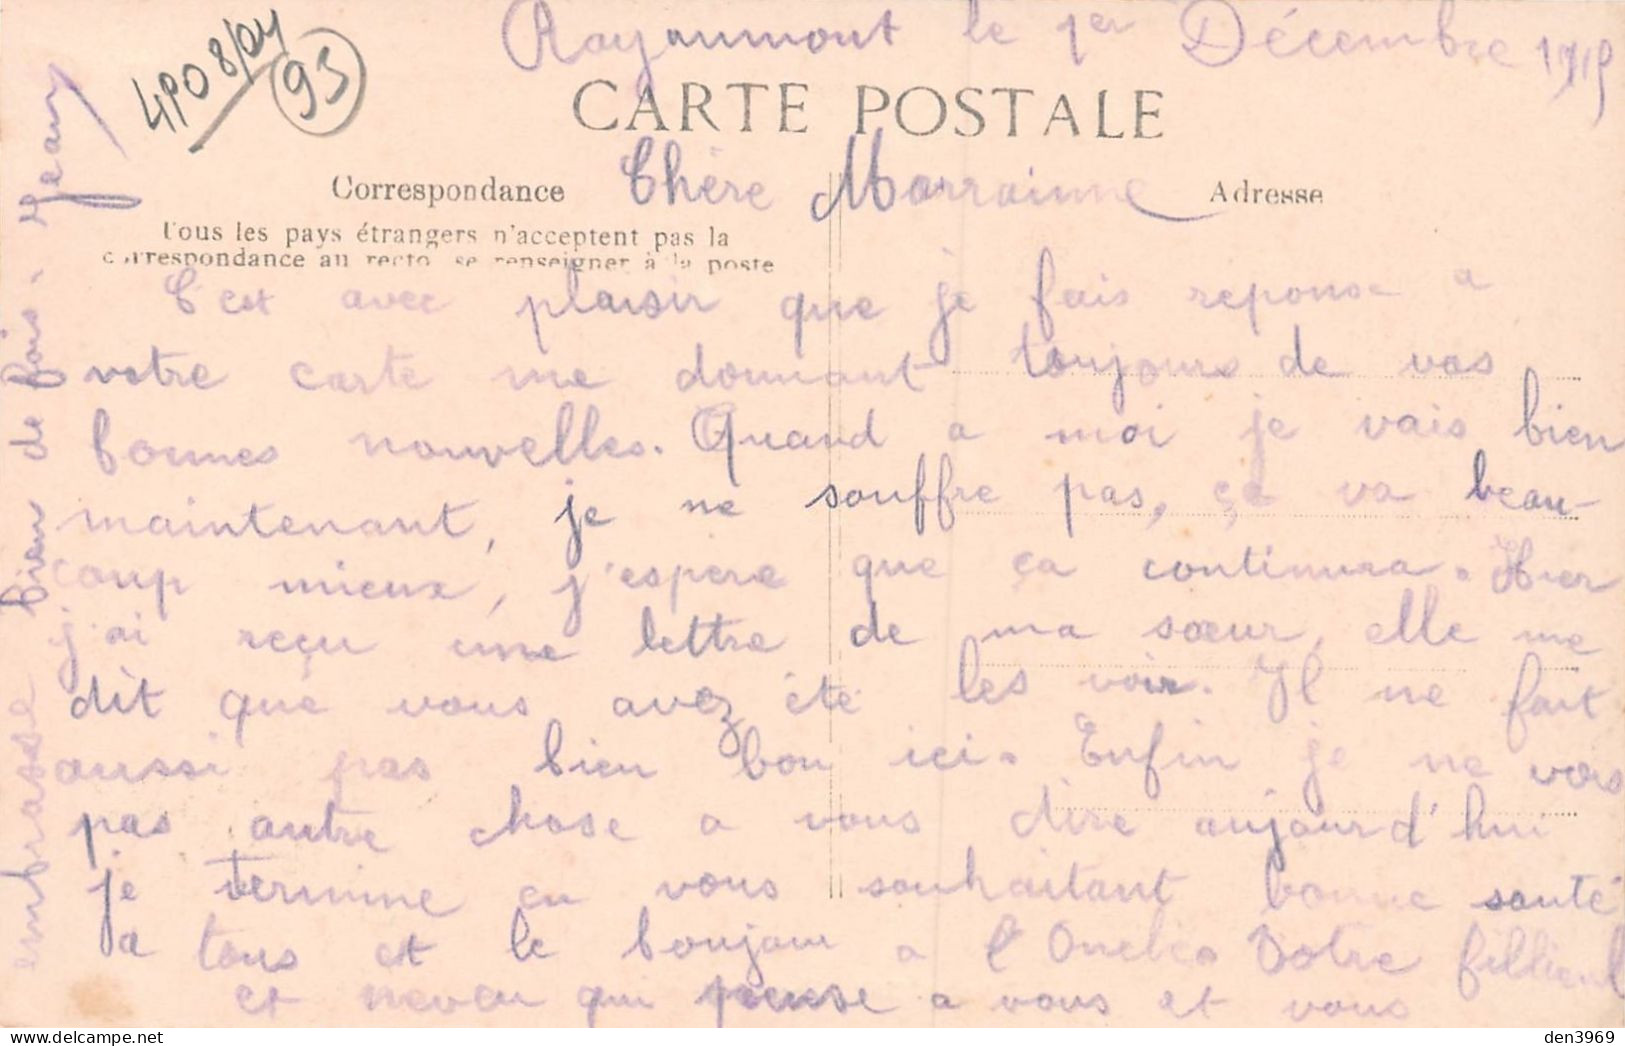 4PO 8/04
93
Royaumont le 1er Décembre 1915
CARTE POSTALE
Correspondance
Chère Marrainne
Adresse
Tous les pays étrangers n'acceptent pas la
correspondance au recto, se renseigner à la poste
C'est avec plaisir que je fais reponse a
votre carte me donnant toujours de vos
bonnes nouvelles. Quand a moi je vais bien
maintenant, je ne souffre pas, ça va beau-
coup mieux, j'espere que ça continura. Hier
j'ai reçu une lettre de ma sœur, elle me
dit que vous avez été les voir. Il ne fait
aussi pas bien bon ici. Enfin je ne vois
pas autre chose a vous dire aujourd'hui
je termine en vous souhaitant bonne santé
a tous et le boujour a l'Oncle. Votre fillieul
et neveu qui pense a vous et vous
embrasse bien de fois. Jean
den3969